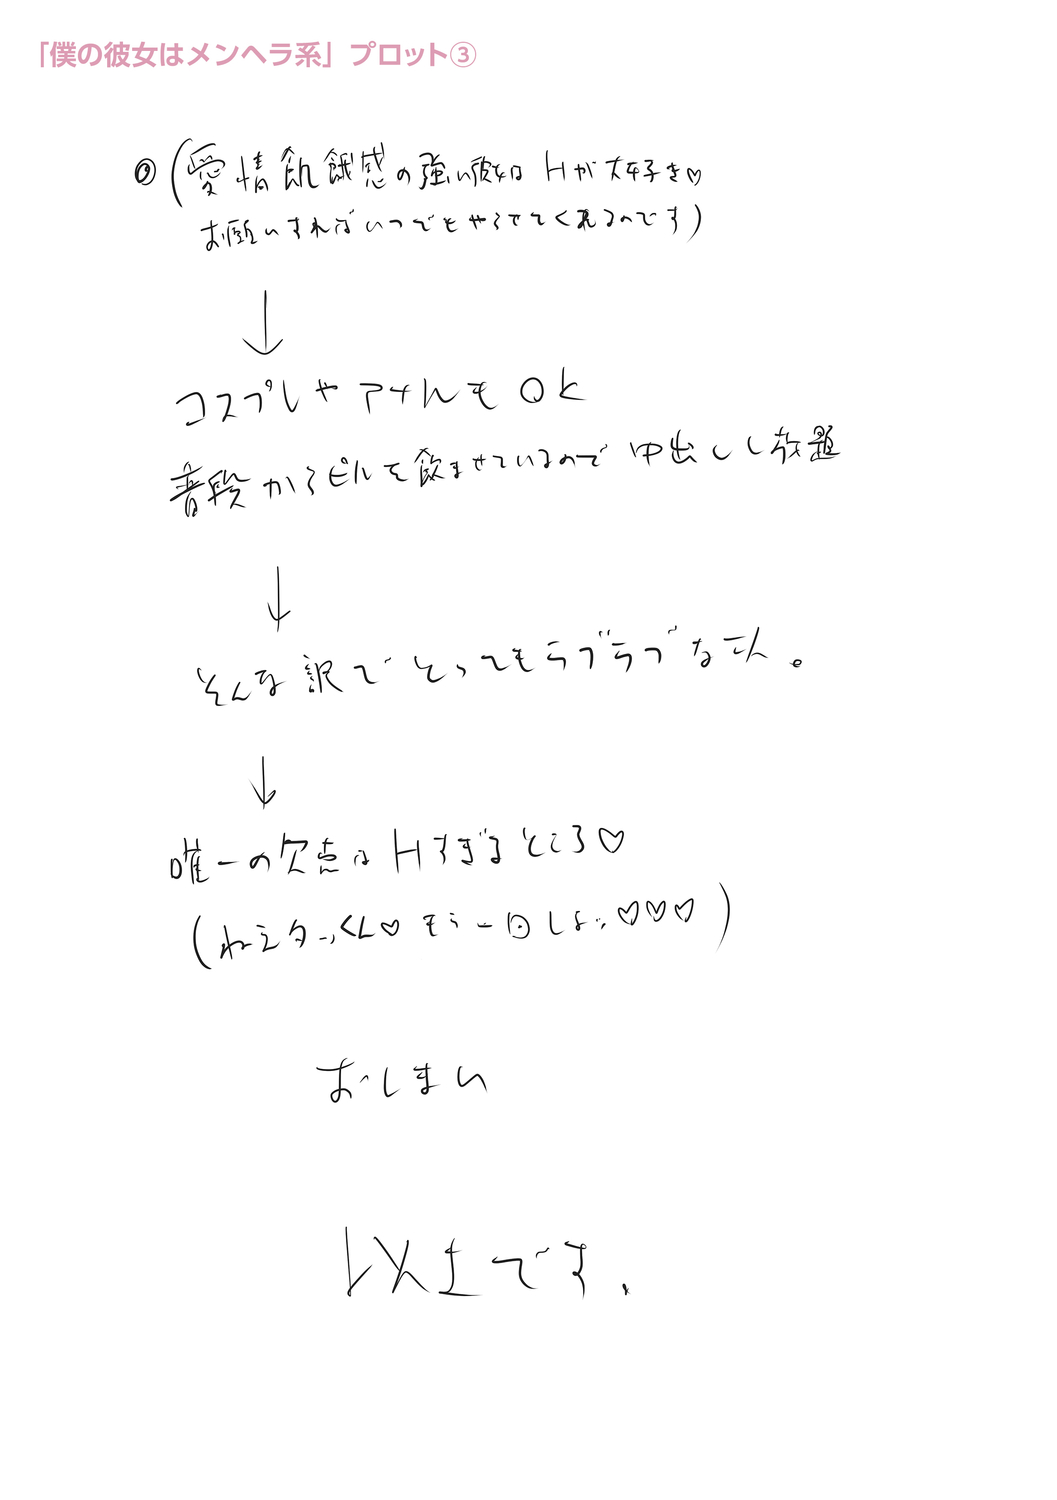 「僕の彼女はメンヘラ系」プロット③
(愛情飢餓感の強い彼女は Hが大好き♡
お願いすればいつでもやらせてくれるのです)
↓
コスプレやアナルもOK
普段からピルを飲ませているので中出しし放題
↓
そんな訳でとってもラブラブな二人。
↓
唯一の欠点はHすぎるところ♡
(ねえターくん♡もう一回しよ♡♡♡)
おしまい
以上です.